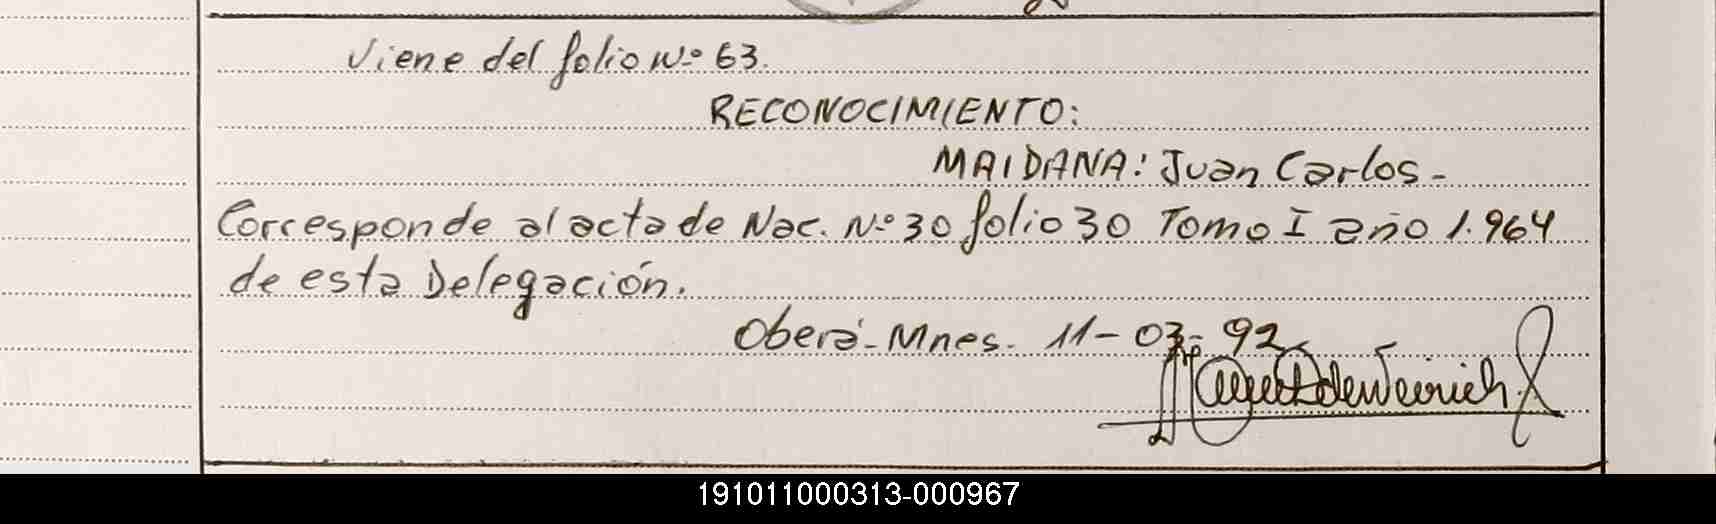 Viene del folio Nº 63.
RECONOCIMIENTO:
MAIDANA: Juan Carlos -
Corresponde al acta de Nac. Nº 30 folio 30 Tomo I año 1.964
de esta Delegación.
Oberá - Mnes. 11-03-92
191011000313-000967